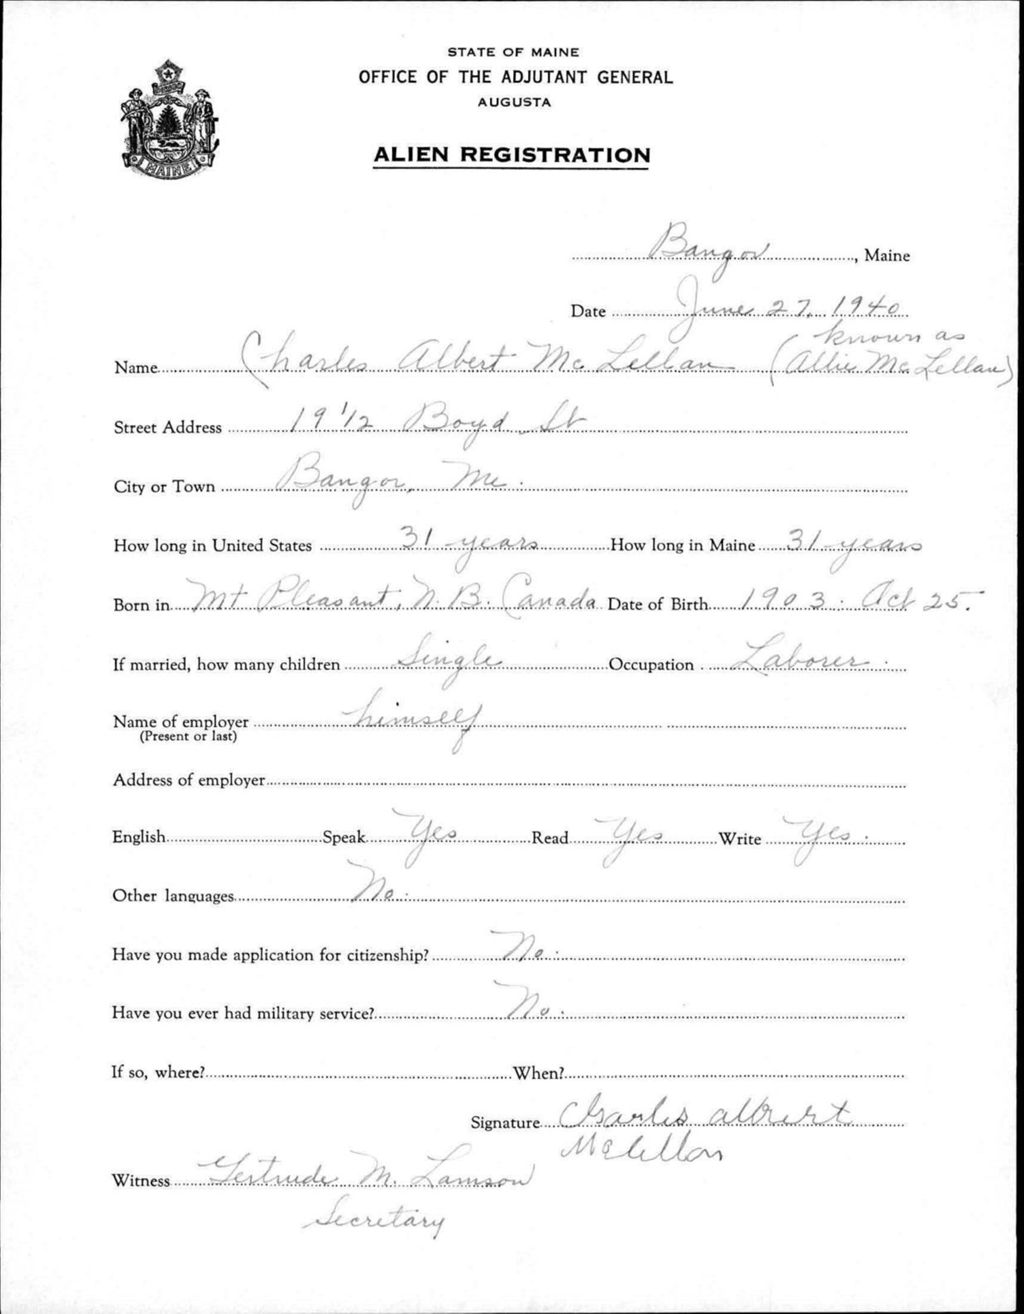 STATE OF MAINE
OFFICE OF THE ADJUTANT GENERAL
AUGUSTA
ALIEN REGISTRATION
MAINE
Bangor, Maine
Date June 27, 1940
known as
Name Charles Albert Mc Lellan (Allie Mc Lellan)
Street Address 19 1/2 Boyd St
City or Town Bangor, Me.
How long in United States 31 years How long in Maine 31 years
Born in Mt Pleasant, N. B. Canada Date of Birth 1903. Oct 25.
If married, how many children Single Occupation Laborer.
Name of employer himself
(Present or last)
Address of employer
English Speak Yes Read Yes Write Yes.
Other languages No.
Have you made application for citizenship? No.
Have you ever had military service? No.
If so, where? When?
Signature Charles albert
Mclellan
Witness Gertrude M. Lamson
Secretary